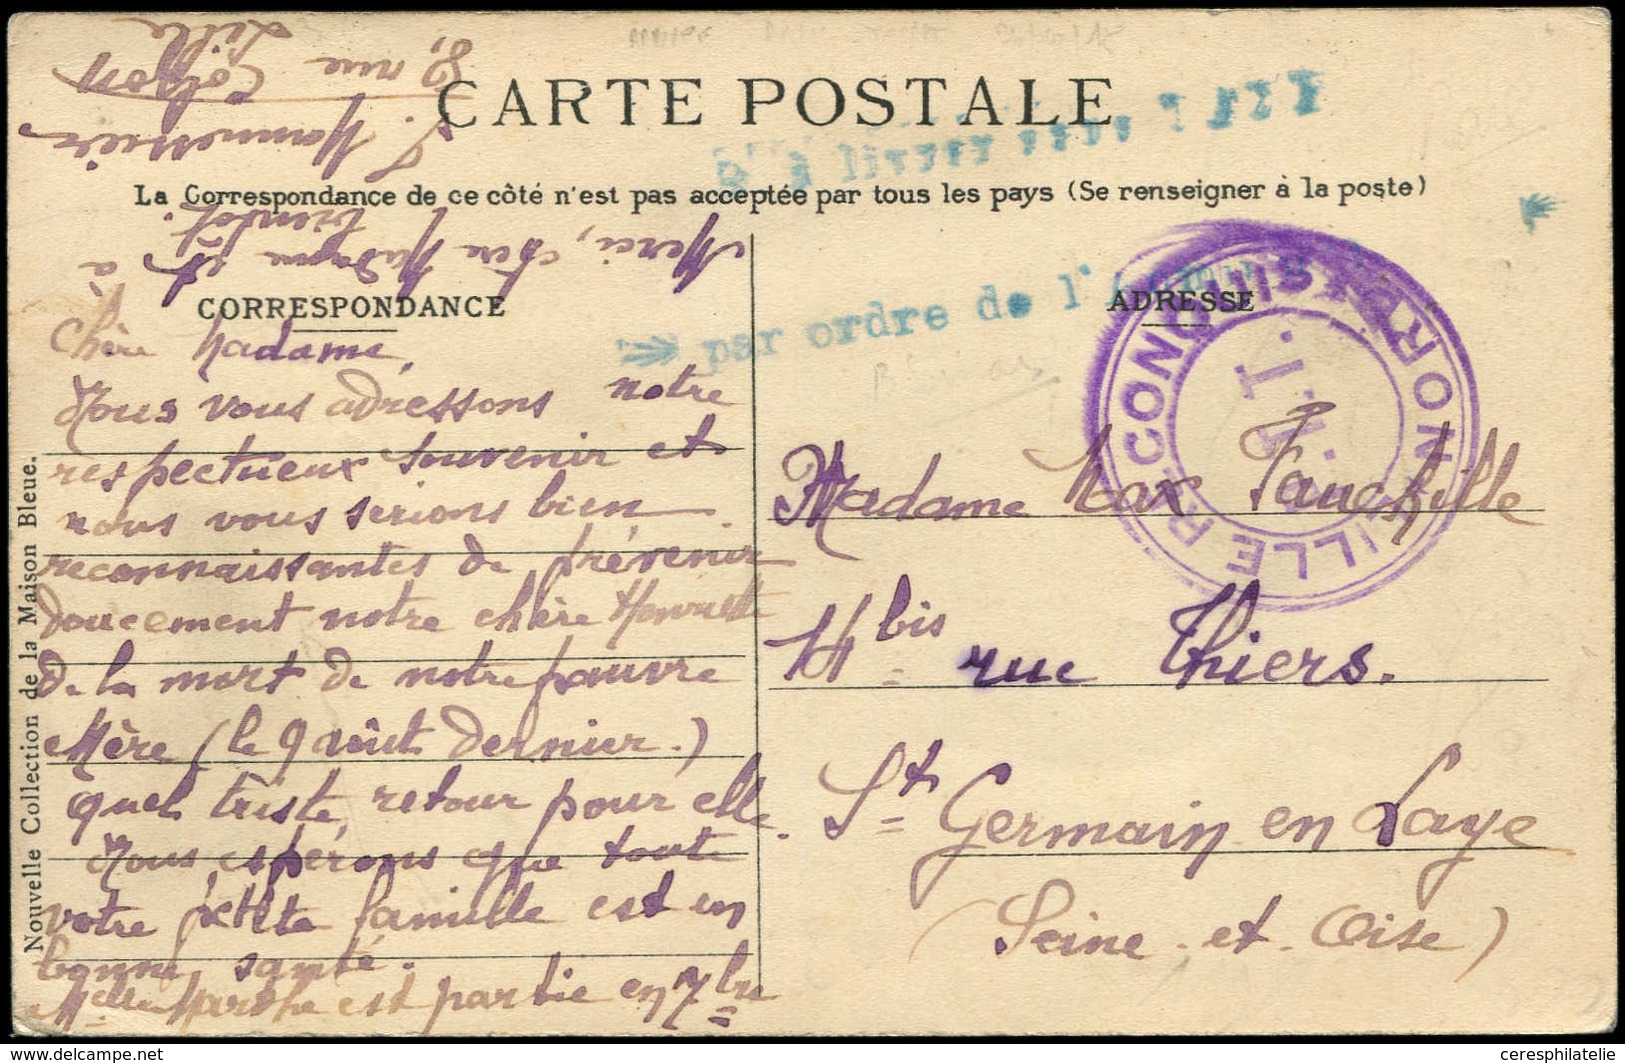 CARTE POSTALE
à livrer sans
La Correspondance de ce côté n'est pas acceptée par tous les pays (Se renseigner à la poste)
par ordre de l'
CORRESPONDANCE
Chère Madame,
Nous vous adressons notre
respectueux souvenir et
nous vous serions bien
reconnaissantes de prévenir
doucement notre chère Henriette
de la mort de notre pauvre
Mère (le 9 août dernier.)
quel triste retour pour elle.
Nous espérons que toute
votre petite famille est en
bonne santé.
Melle Marthe est partie en 7bre
Merci, chère Madame et à
bientôt.
8, rue Colson
Lille
ADRESSE
LILLE RECONQUIS NORD
Madame Max Fauchille
14 bis rue Thiers.
St Germain en Laye
(Seine et Oise)
Nouvelle Collection de la Maison Bleue.
ceresphilatelie